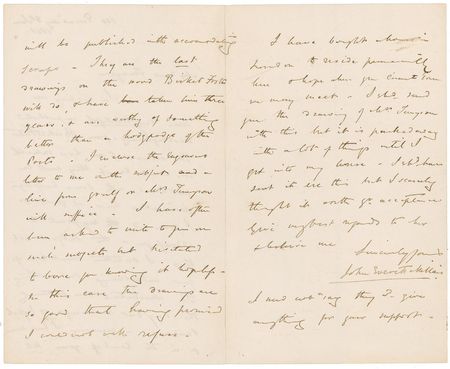 will be published with accommodating
scraps. They are the last
drawings on the wood Birket Foster
will do, & have taken him three
years, & are worthy of something
better than a hodgepodge of the
Poets. I enclose the Engravers
letter to me on the subject and a
line from yourself or Mrs Tennyson
will suffice. I have often
been asked to write to you on
such subjects but hesitated
to bore you knowing it hopeless.
In this case the drawings are
so good that having promised
I could not refuse.
I have bought a house in
London to reside permanently
here & hope when you come to town
we may meet. I shd send
you the drawing of Mrs Tennyson
with this but it is packed away
with a lot of things until I
get into my house. I shd have
sent it ere this but I scarcely
thought it worth yr acceptance
Give my best regards to her
& believe me
Sincerely yours
John Everett Millais
I need not say they I give
anything for your support.